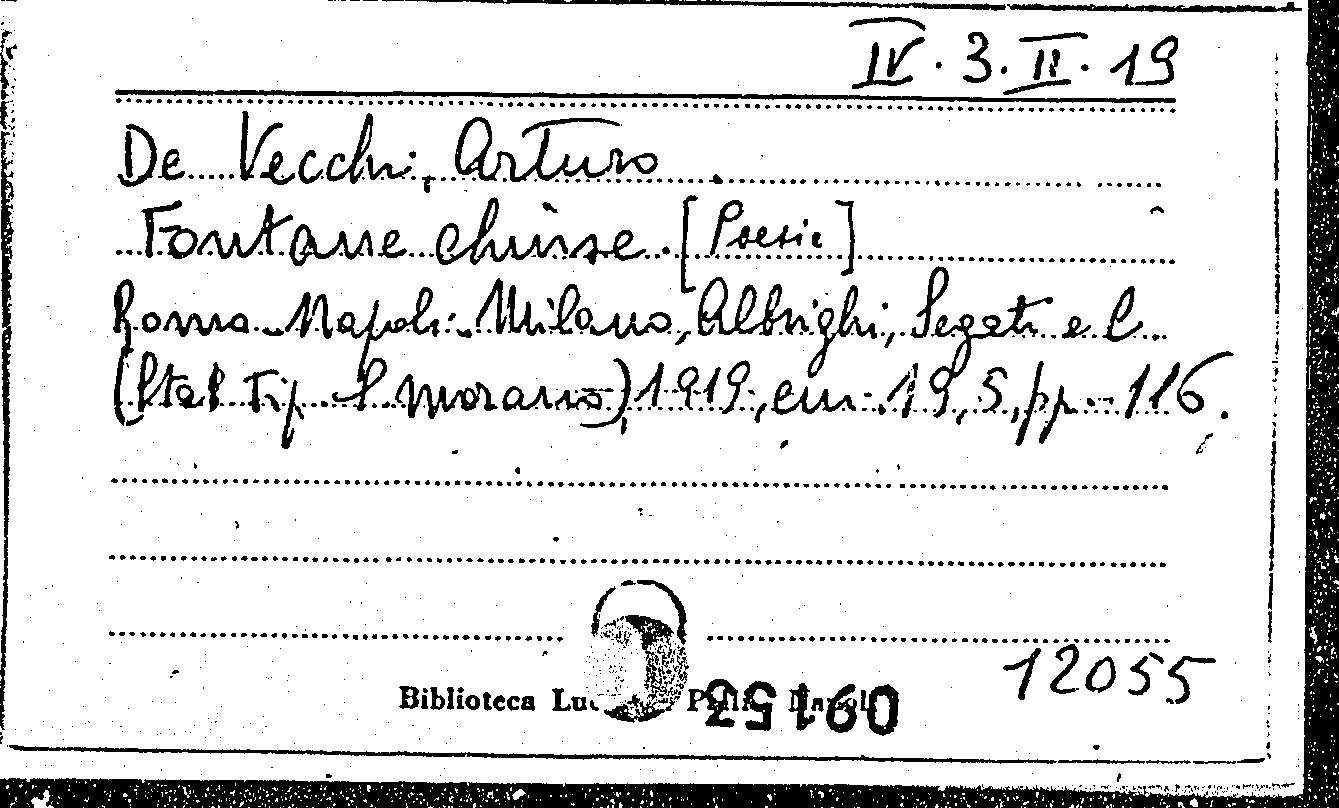 IV. 3. II. 19
De Vecchi, Arturo.
Fontane chiuse. [Poesie]
Roma-Napoli-Milano, Albrighi, Segati e C.
(Stab Tip S Morano), 1919, cm. 19,5, pp. 116.
12055
Biblioteca